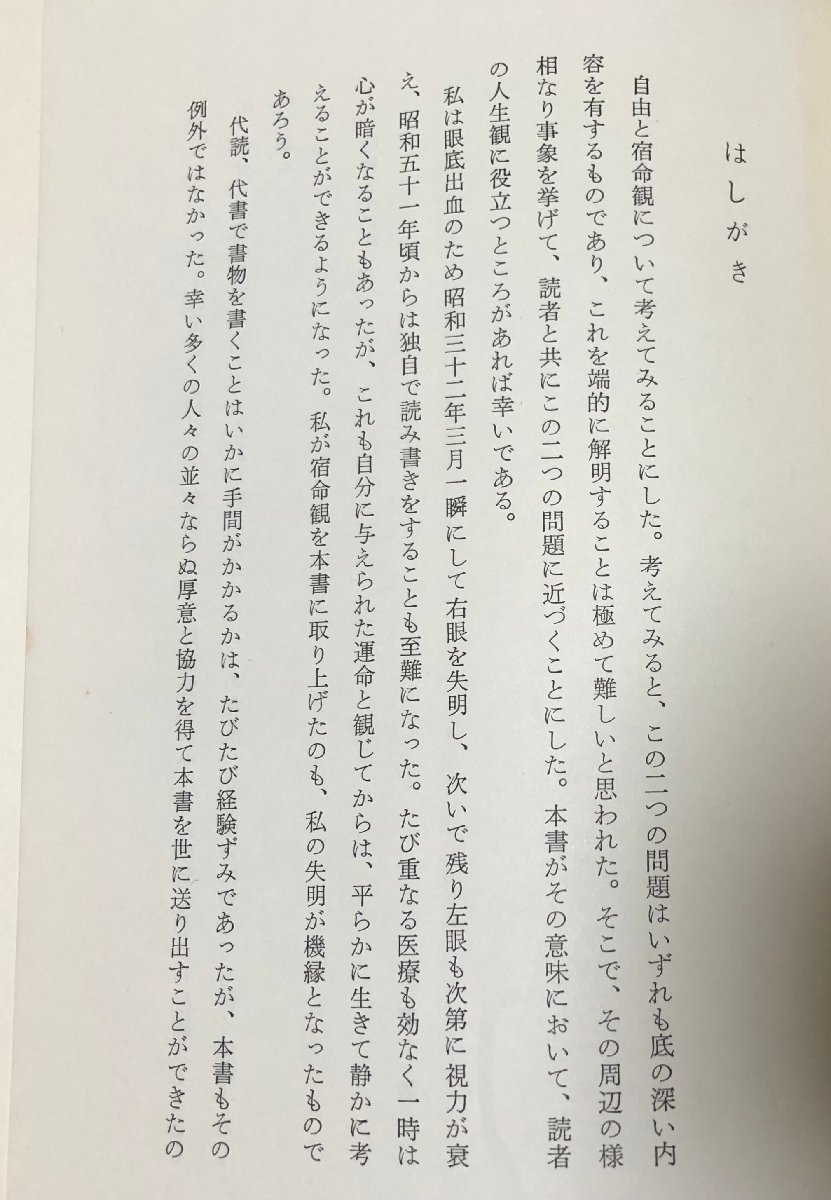 はしがき
自由と宿命観について考えてみることにした。考えてみると、この二つの問題はいずれも底の深い内
容を有するものであり、これを端的に解明することは極めて難しいと思われた。そこで、その周辺の様
相なり事象を挙げて、読者と共にこの二つの問題に近づくことにした。本書がその意味において、読者
の人生観に役立つところがあれば幸いである。
私は眼底出血のため昭和三十二年三月一瞬にして右眼を失明し、次いで残り左眼も次第に視力が衰
え、昭和五十一年頃からは独自で読み書きをすることも至難になった。たび重なる医療も効なく一時は
心が暗くなることもあったが、これも自分に与えられた運命と観じてからは、平らかに生きて静かに考
えることができるようになった。私が宿命観を本書に取り上げたのも、私の失明が機縁となったもので
あろう。
代読、代書で書物を書くことはいかに手間がかかるかは、たびたび経験ずみであったが、本書もその
例外ではなかった。幸い多くの人々の並々ならぬ厚意と協力を得て本書を世に送り出すことができたの